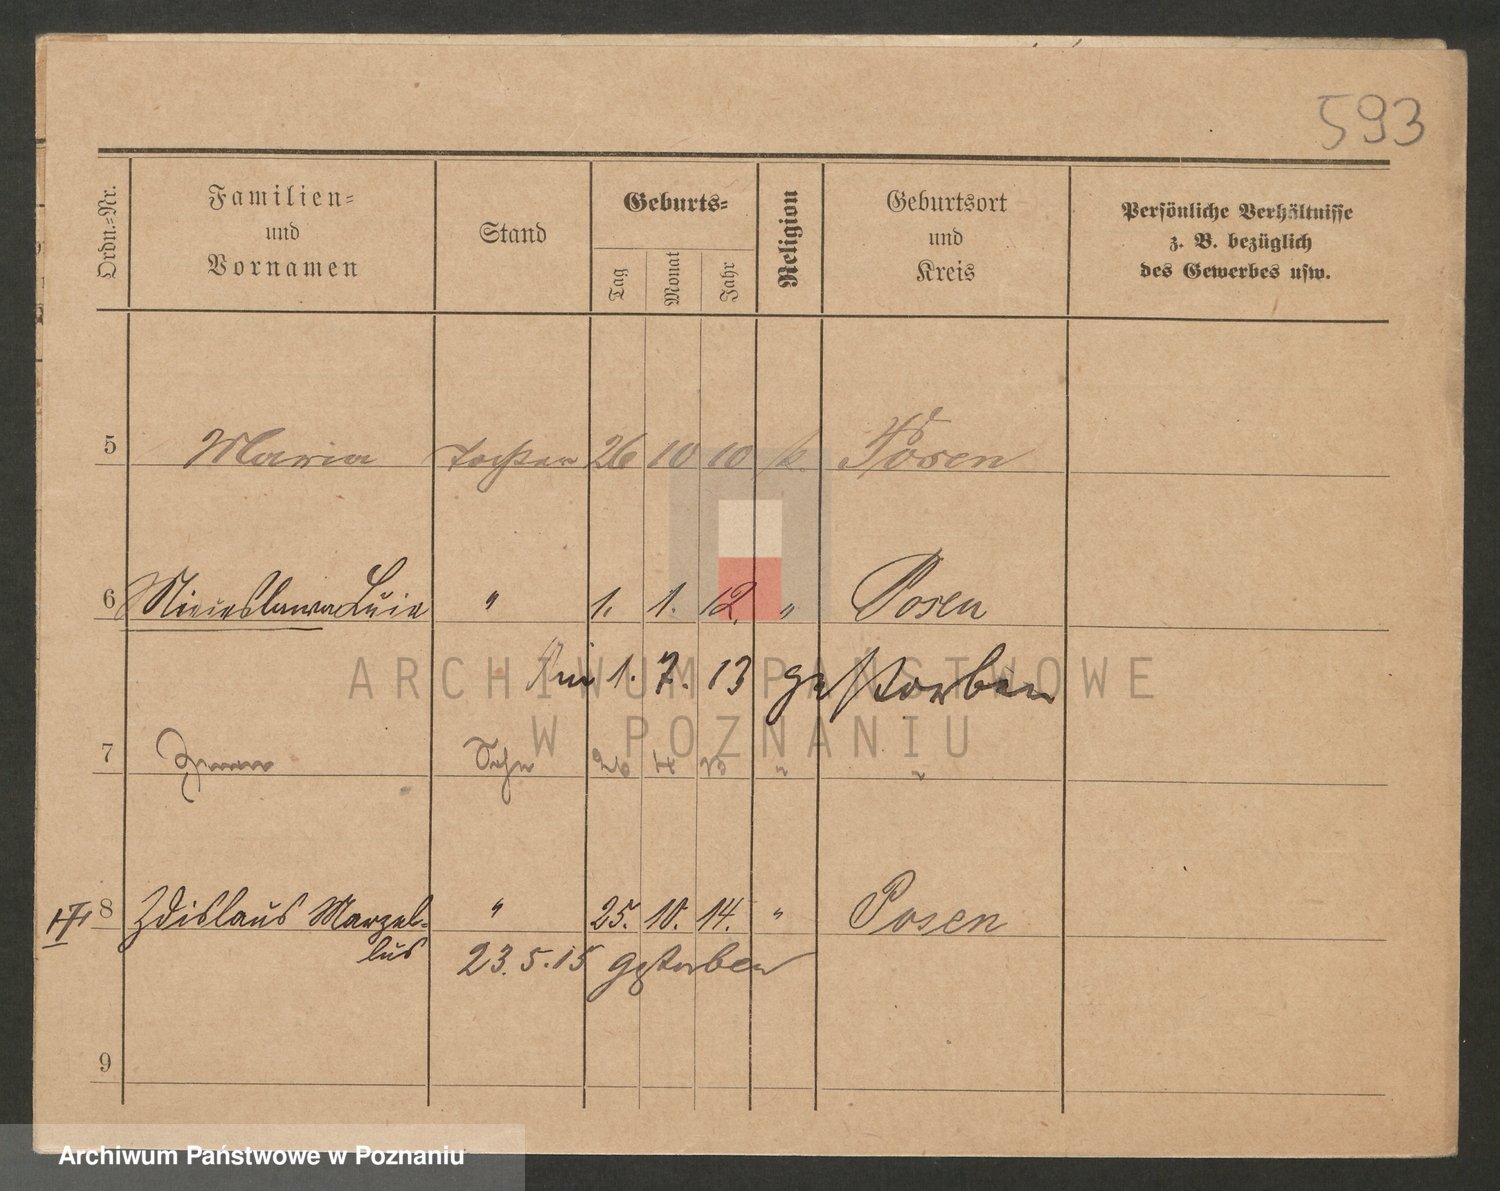 593
Ordn.-Nr.
Familien-
und
Vornamen
Stand
Geburts-
Tag
Monat
Jahr
Religion
Geburtsort
und
Kreis
Persönliche Verhältnisse
z. B. bezüglich
des Gewerbes usw.
5 Maria Tochter 26 10 10 k. Posen
6 " 1. 1. 12. " Posen
Am 1. 7. 13 gestorben
7 Sohn " "
8 Zdislaus Marzel- " 25. 10. 14. " Posen
lus 23.5.15 gestorben
9
ARCHIWUM PAŃSTWOWE
W POZNANIU
Archiwum Państwowe w Poznaniu